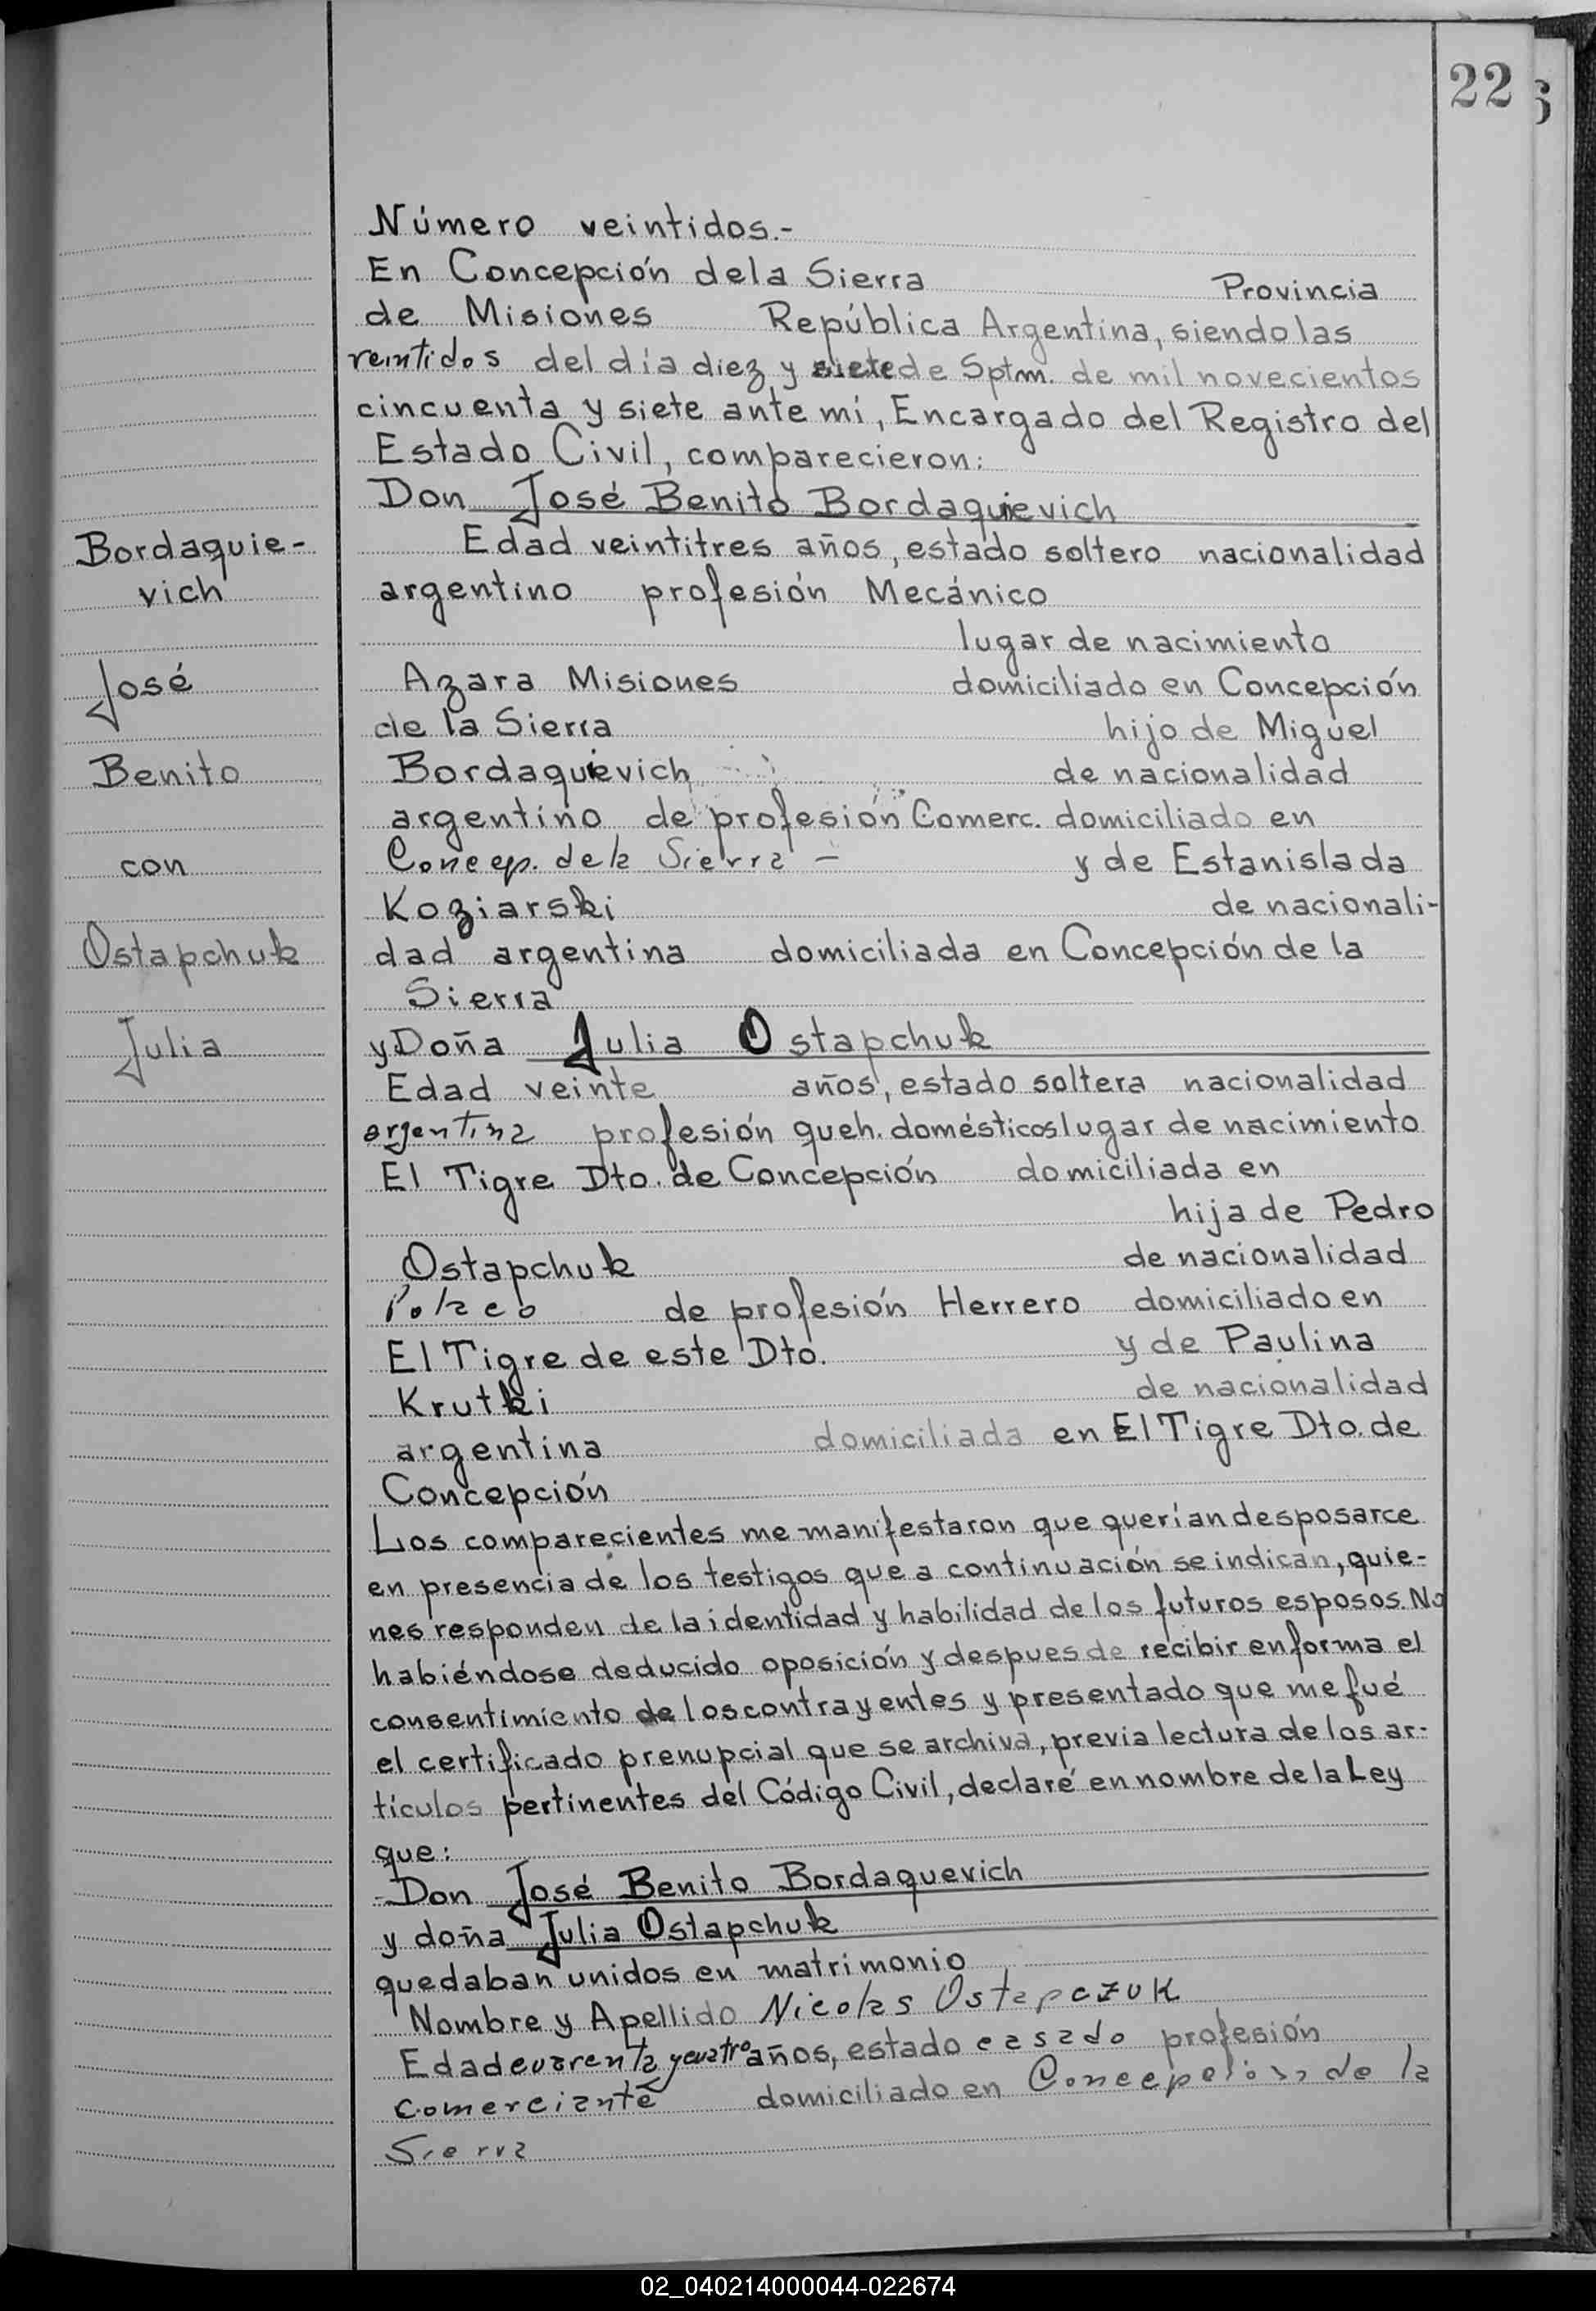 22
Número veintidos.-
En Concepción dela Sierra Provincia
de Misiones República Argentina, siendo las
veintidos del día diez y siete de Sptm. de mil novecientos
cincuenta y siete ante mí, Encargado del Registro del
Estado Civil, comparecieron:
Don José Benito Bordaquievich
Edad veintitres años, estado soltero nacionalidad
argentino profesión Mecánico
lugar de nacimiento
Azara Misiones domiciliado en Concepción
de la Sierra hijo de Miguel
Bordaquievich de nacionalidad
argentino de profesión Comerc. domiciliado en
Concep. de la Sierra - y de Estanislada
Koziarski de nacionali-
dad argentina domiciliada en Concepción de la
Sierra
y Doña Julia Ostapchuk
Edad veinte años, estado soltera nacionalidad
argentina profesión queh. domésticos lugar de nacimiento
El Tigre Dto. de Concepción domiciliada en
hija de Pedro
Ostapchuk de nacionalidad
Polaco de profesión Herrero domiciliado en
El Tigre de este Dto. y de Paulina
Krutki de nacionalidad
argentina domiciliada en El Tigre Dto. de
Concepción
Los comparecientes me manifestaron que querían desposarce
en presencia de los testigos que a continuación se indican, quie-
nes responden de la identidad y habilidad de los futuros esposos. No
habiéndose deducido oposición y despues de recibir en forma el
consentimiento de los contrayentes y presentado que me fué
el certificado prenupcial que se archiva, previa lectura de los ar-
tículos pertinentes del Código Civil, declaré en nombre de la Ley
que:
Don José Benito Bordaquevich
y doña Julia Ostapchuk
quedaban unidos en matrimonio
Nombre y Apellido Nicolas Ostapczuk
Edad cuarenta y cuatro años, estado casado profesión
comerciante domiciliado en Concepción de la
Sierra
Bordaquie-
vich
José
Benito
con
Ostapchuk
Julia
02_040214000044-022674